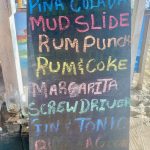 PINA COLADA
MUD SLIDE
RUM PUNCH
RUM & COKE
MARGARITA
SCREWDRIVER
JIN & TONIC